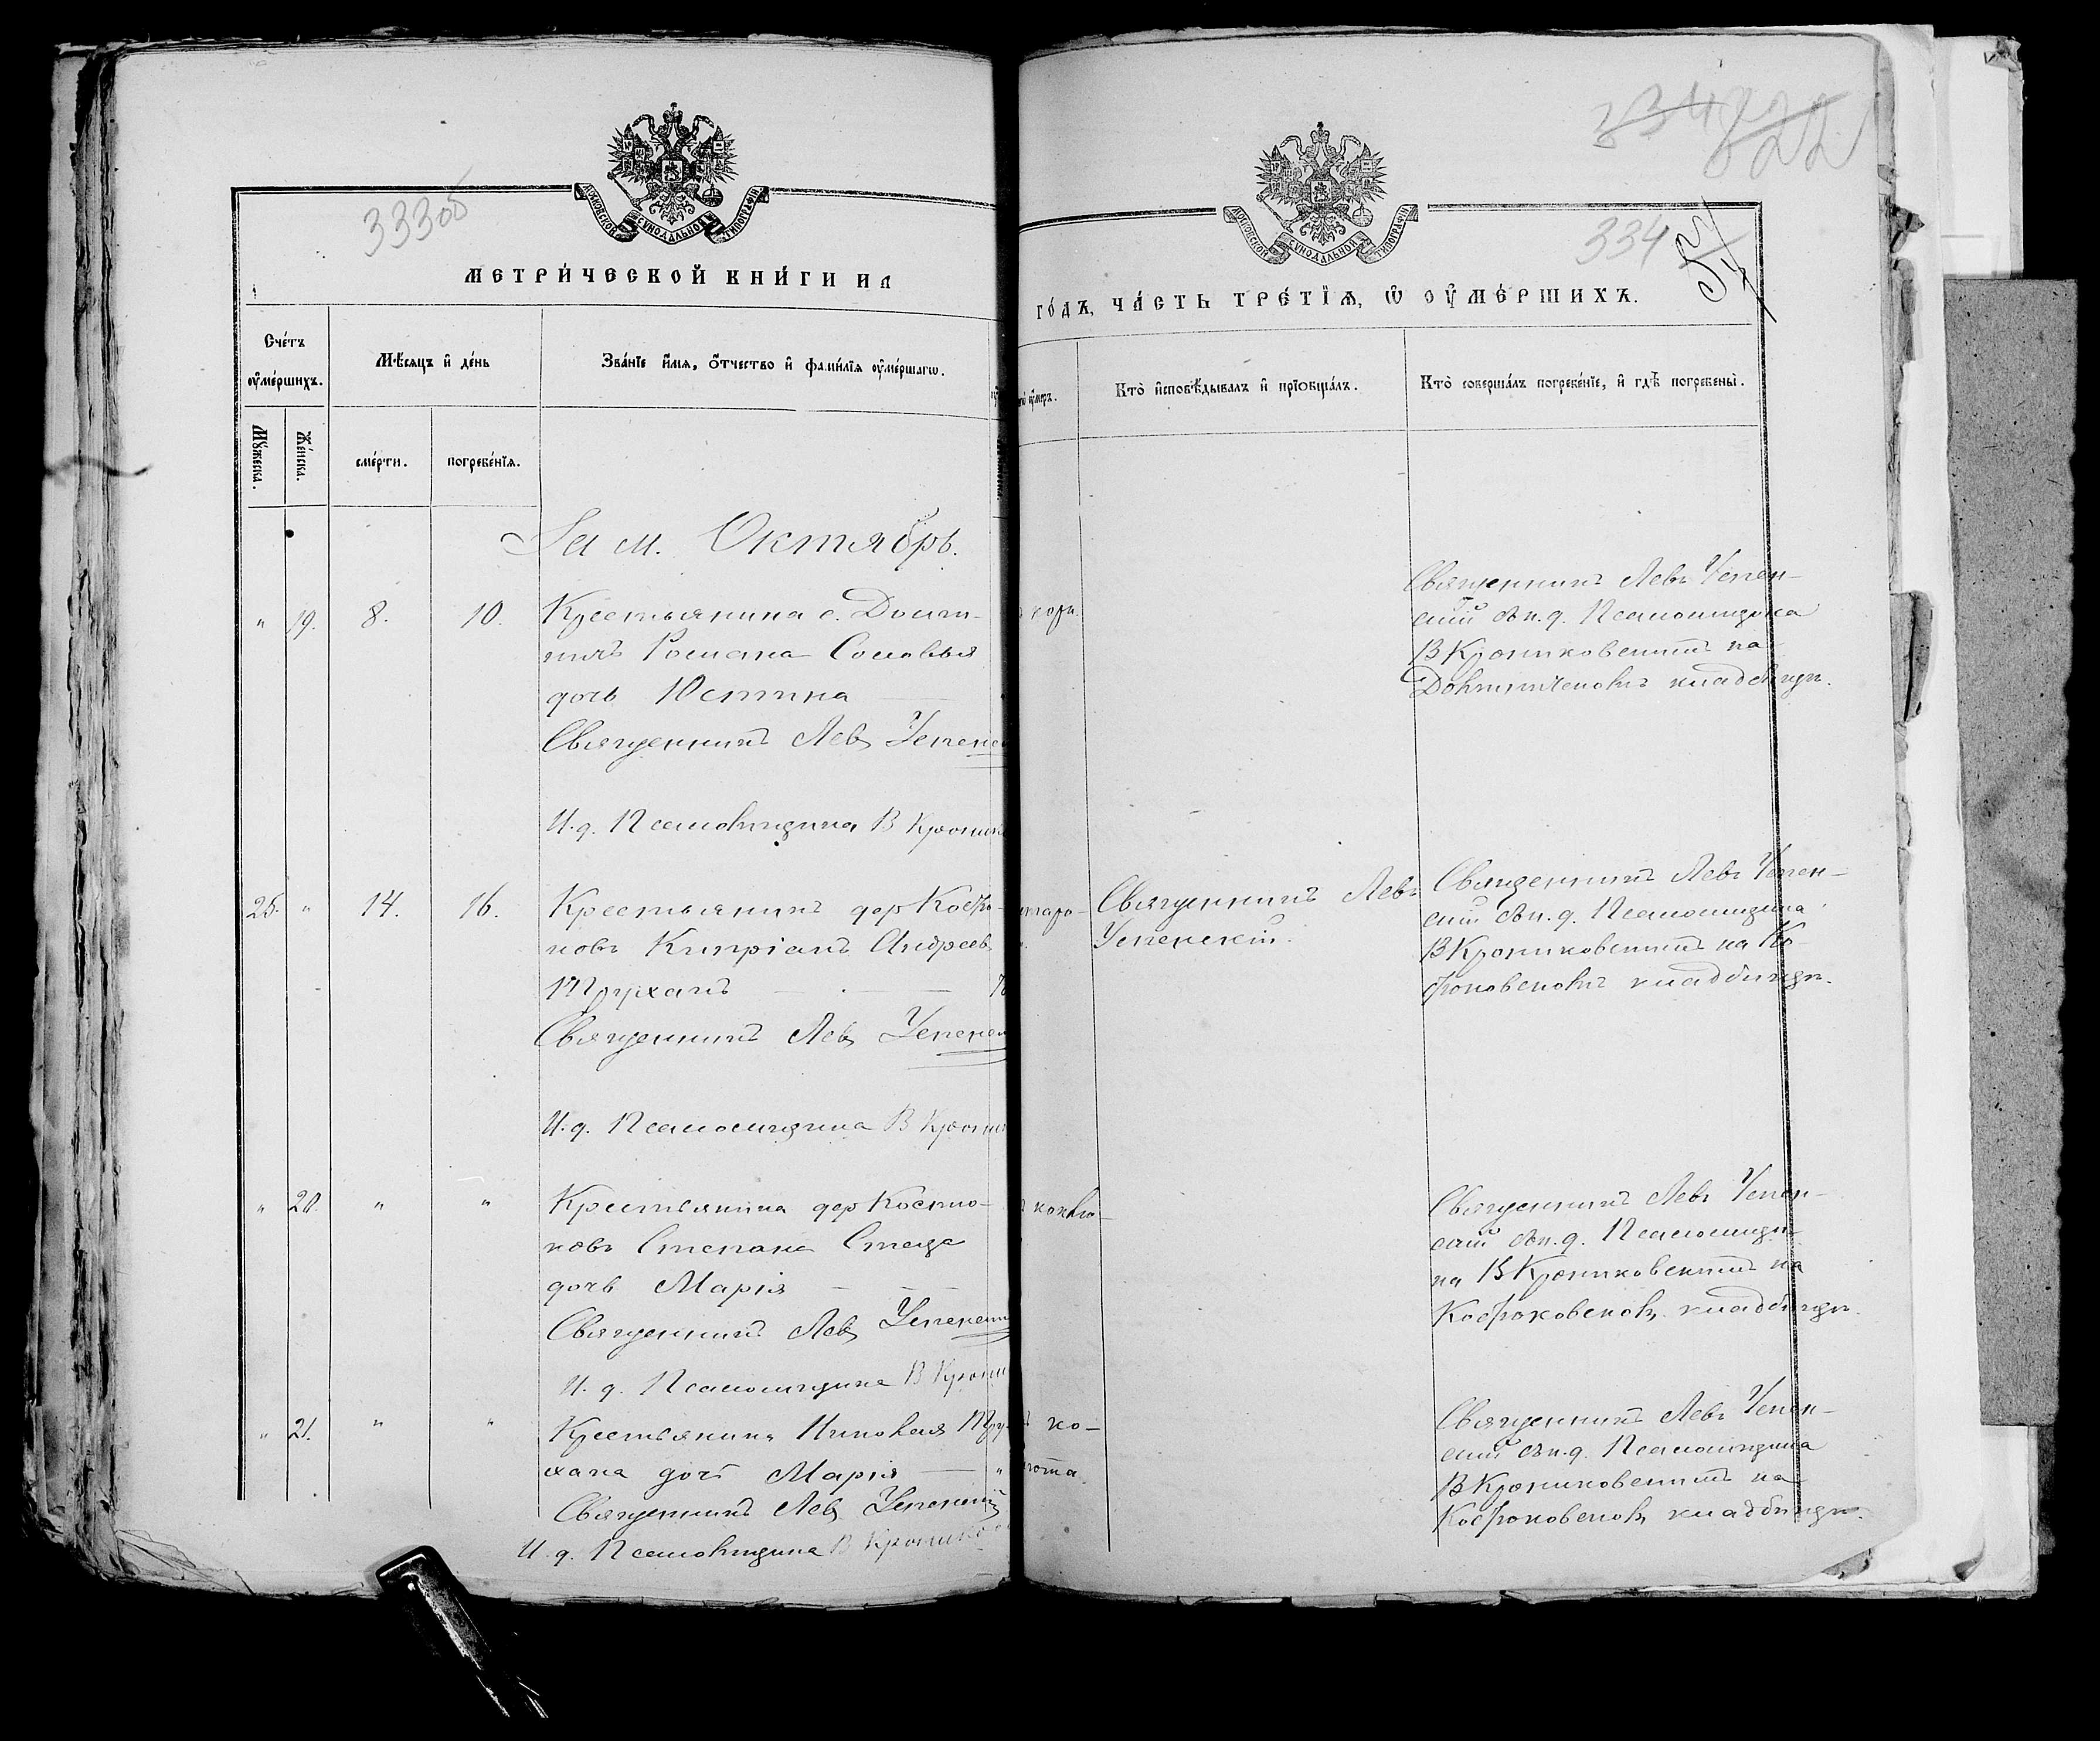 333 об
МОСКОВСКОЙ СѴНОДАЛЬНОЙ ТИПОГРАФІИ
МЕТРИ́ЧЕСКОЙ КНИ́ГИ НА
Сче́тъ
оумершихъ.
Мѣсяцъ и де́нь
Зва́нїе и҆́мя, о҆́тчество и҆ фами́лїя оу҆ме́ршагѡ.
Мꙋжеска.
Же́нска.
сме́рти.
погребе́нїя.
За м. Октябрь.
" 19. 8. 10. Крестьянина с.
Романа Соловья
дочь Юстина
Священникъ Левъ Успенс
И. д. Псаломщика В Кроник
25. " 14. 16. Крестьянинъ дер
новъ Кипріанъ Андреевъ
Труханъ
Священникъ Левъ Успенс
И. д. Псаломщика В Крони
" 20. " " Крестьянина дер
новъ Степана
дочь Марія
Священникъ Левъ Успенск
И. д. Псаломщика В Крони
" 21. " " Крестьянина Тру
хана дочь Марія "
Священникъ Левъ Успенскій
И. д. Псаломщика В Кронико
334
МОСКОВСКОЙ СѴНОДАЛЬНОЙ ТИПОГРАФІИ
ГО́ДЪ, ЧА́СТЬ ТРЕ́ТЇѦ, Ѡ ОУ҆МЕ́РШИХЪ.
оу҆меръ.
Кто̀ и҆сповѣ́дывалъ и҆ прїобща́лъ.
Кто̀ соверша́лъ погребе́нїе, и҆ гдѣ̀ погребены̀.
кори.
Священникъ Левъ Успен-
скій съ и. д. Псаломщика
В Крониковскимъ на
кладбищѣ.
Священникъ Левъ
Успенскій.
Священникъ Левъ Успен-
скій съ и. д. Псаломщика
В Крониковскимъ на Ко-
кладбищѣ.
Священникъ Левъ Успен-
скій съ и. д. Псаломщи-
ка В Крониковскимъ на
кладбищѣ.
ко-
Священникъ Левъ Успен-
скій съ и. д. Псаломщика
В Крониковскимъ на
кладбищѣ.